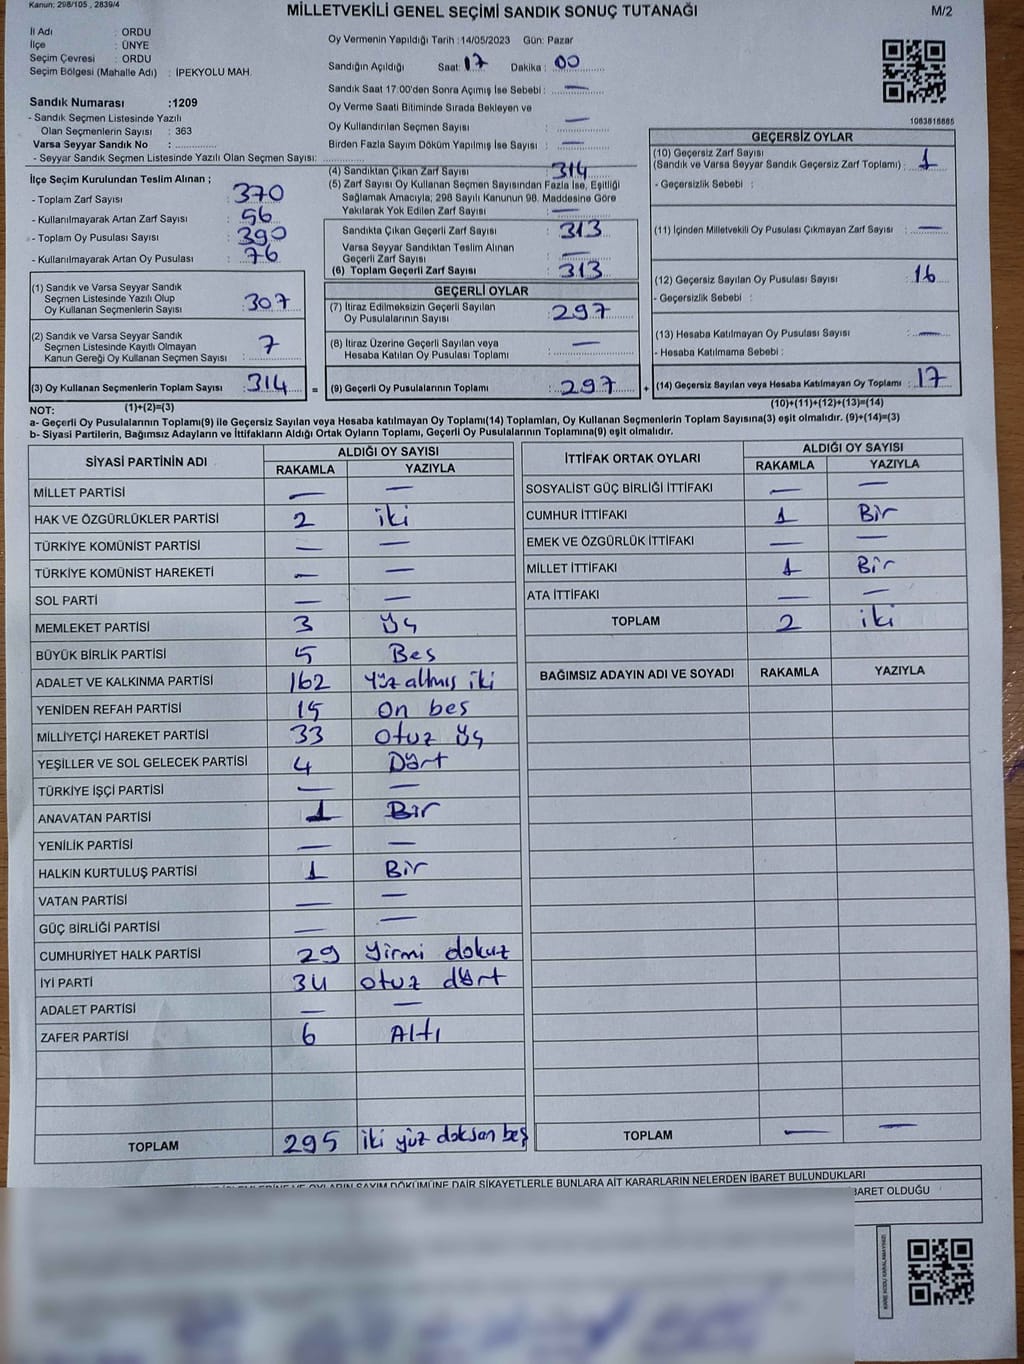 Kanun: 298/105 , 2839/4
MİLLETVEKİLİ GENEL SEÇİMİ SANDIK SONUÇ TUTANAĞI
M/2
İl Adı : ORDU
İlçe : ÜNYE
Seçim Çevresi : ORDU
Seçim Bölgesi (Mahalle Adı) : İPEKYOLU MAH.
Sandık Numarası :1209
- Sandık Seçmen Listesinde Yazılı
Olan Seçmenlerin Sayısı : 363
Varsa Seyyar Sandık No :
- Seyyar Sandık Seçmen Listesinde Yazılı Olan Seçmen Sayısı:
Oy Vermenin Yapıldığı Tarih :14/05/2023 Gün: Pazar
Sandığın Açıldığı Saat: 17 Dakika : 00
Sandık Saat 17:00'den Sonra Açımış İse Sebebi : —
Oy Verme Saati Bitiminde Sırada Bekleyen ve
Oy Kullandırılan Seçmen Sayısı : —
Birden Fazla Sayım Döküm Yapılmış İse Sayısı : —
1083818885
İlçe Seçim Kurulundan Teslim Alınan ;
- Toplam Zarf Sayısı : 370
- Kullanılmayarak Artan Zarf Sayısı : 56
- Toplam Oy Pusulası Sayısı : 390
- Kullanılmayarak Artan Oy Pusulası : 76
(1) Sandık ve Varsa Seyyar Sandık
Seçmen Listesinde Yazılı Olup
Oy Kullanan Seçmenlerin Sayısı : 307
(2) Sandık ve Varsa Seyyar Sandık
Seçmen Listesinde Kayıtlı Olmayan
Kanun Gereği Oy Kullanan Seçmen Sayısı : 7
(3) Oy Kullanan Seçmenlerin Toplam Sayısı : 314 =
(4) Sandıktan Çıkan Zarf Sayısı : 314
(5) Zarf Sayısı Oy Kullanan Seçmen Sayısından Fazla İse, Eşitliği
Sağlamak Amacıyla; 298 Sayılı Kanunun 98. Maddesine Göre
Yakılarak Yok Edilen Zarf Sayısı : —
Sandıkta Çıkan Geçerli Zarf Sayısı : 313
Varsa Seyyar Sandıktan Teslim Alınan
Geçerli Zarf Sayısı : —
(6) Toplam Geçerli Zarf Sayısı : 313
GEÇERLİ OYLAR
(7) İtiraz Edilmeksizin Geçerli Sayılan
Oy Pusulalarının Sayısı : 297
(8) İtiraz Üzerine Geçerli Sayılan veya
Hesaba Katılan Oy Pusulası Toplamı : —
(9) Geçerli Oy Pusulalarının Toplamı : 297 +
GEÇERSİZ OYLAR
(10) Geçersiz Zarf Sayısı
(Sandık ve Varsa Seyyar Sandık Geçersiz Zarf Toplamı) : 1
- Geçersizlik Sebebi :
(11) İçinden Milletvekili Oy Pusulası Çıkmayan Zarf Sayısı : —
(12) Geçersiz Sayılan Oy Pusulası Sayısı : 16
- Geçersizlik Sebebi :
(13) Hesaba Katılmayan Oy Pusulası Sayısı : —
- Hesaba Katılmama Sebebi :
(14) Geçersiz Sayılan veya Hesaba Katılmayan Oy Toplamı : 17
NOT: (1)+(2)=(3) (10)+(11)+(12)+(13)=(14)
a- Geçerli Oy Pusulalarının Toplamı(9) ile Geçersiz Sayılan veya Hesaba katılmayan Oy Toplamı(14) Toplamları, Oy Kullanan Seçmenlerin Toplam Sayısına(3) eşit olmalıdır. (9)+(14)=(3)
b- Siyasi Partilerin, Bağımsız Adayların ve İttifakların Aldığı Ortak Oyların Toplamı, Geçerli Oy Pusulalarının Toplamına(9) eşit olmalıdır.
SİYASİ PARTİNİN ADI ALDIĞI OY SAYISI
RAKAMLA YAZIYLA
MİLLET PARTİSİ — —
HAK VE ÖZGÜRLÜKLER PARTİSİ 2 iki
TÜRKİYE KOMÜNİST PARTİSİ — —
TÜRKİYE KOMÜNİST HAREKETİ — —
SOL PARTİ — —
MEMLEKET PARTİSİ 3 Üç
BÜYÜK BİRLİK PARTİSİ 5 Bes
ADALET VE KALKINMA PARTİSİ 162 Yüz altmış iki
YENİDEN REFAH PARTİSİ 15 On bes
MİLLİYETÇİ HAREKET PARTİSİ 33 Otuz Üç
YEŞİLLER VE SOL GELECEK PARTİSİ 4 Dört
TÜRKİYE İŞÇİ PARTİSİ — —
ANAVATAN PARTİSİ 1 Bir
YENİLİK PARTİSİ — —
HALKIN KURTULUŞ PARTİSİ 1 Bir
VATAN PARTİSİ — —
GÜÇ BİRLİĞİ PARTİSİ — —
CUMHURİYET HALK PARTİSİ 29 Yirmi dokuz
İYİ PARTİ 34 otuz dört
ADALET PARTİSİ — —
ZAFER PARTİSİ 6 Altı
TOPLAM 295 iki yüz doksan beş
İTTİFAK ORTAK OYLARI ALDIĞI OY SAYISI
RAKAMLA YAZIYLA
SOSYALİST GÜÇ BİRLİĞİ İTTİFAKI — —
CUMHUR İTTİFAKI 1 Bir
EMEK VE ÖZGÜRLÜK İTTİFAKI — —
MİLLET İTTİFAKI 1 Bir
ATA İTTİFAKI — —
TOPLAM 2 iki
BAĞIMSIZ ADAYIN ADI VE SOYADI RAKAMLA YAZIYLA
TOPLAM — —
OYLARIN SAYIM DÖKÜMÜNE DAİR ŞİKAYETLERLE BUNLARA AİT KARARLARIN NELERDEN İBARET BULUNDUKLARI
BARET OLDUĞU
KARE KODU KARALAMAYINIZ!